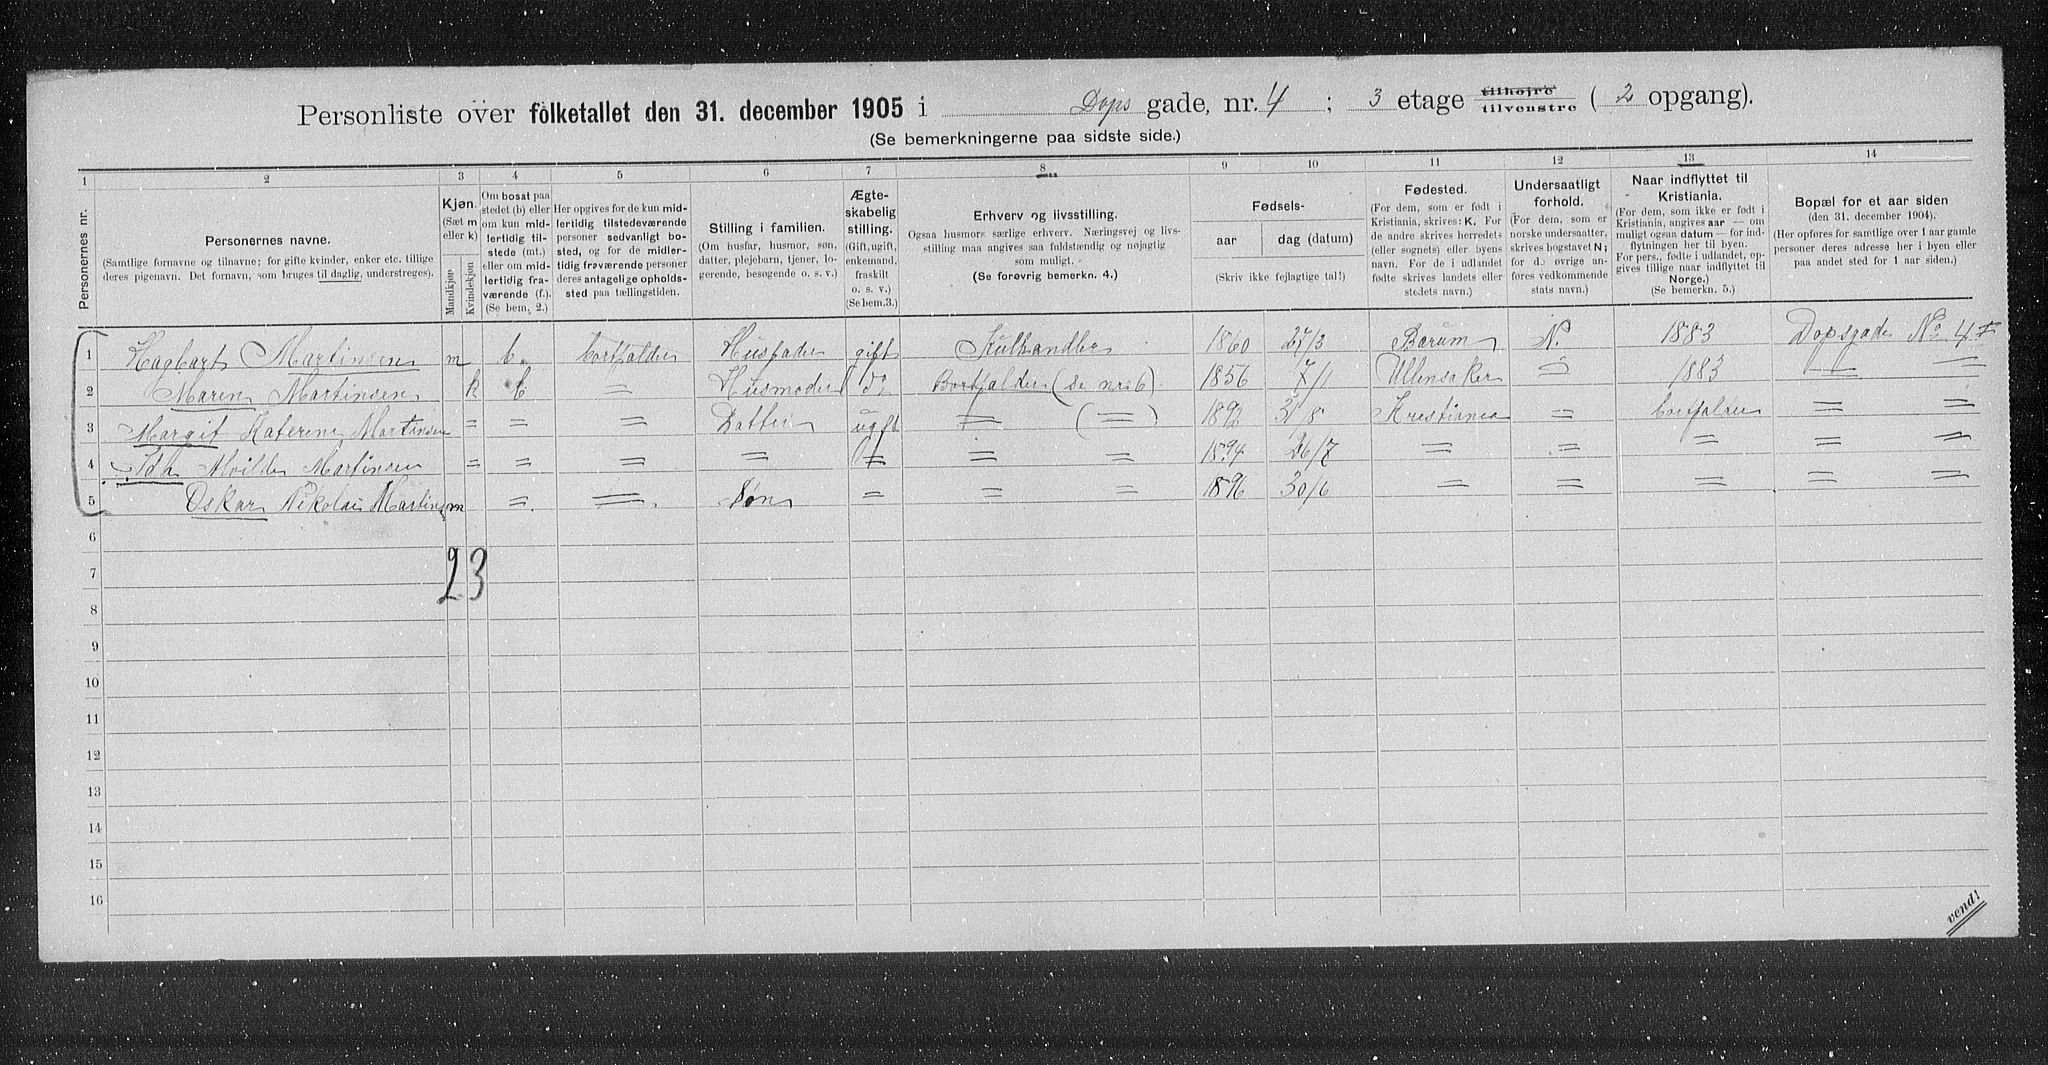 Personliste over folketallet den 31. december 1905 i Dops gade, nr. 4 ; 3 etage tilhøjre tilvenstre ( 2 opgang).
(Se bemerkningerne paa sidste side.)
1 2 3 4 5 6 7 8 9 10 11 12 13 14
Personernes nr.
Personernes navne.
(Samtlige fornavne og tilnavne; for gifte kvinder, enker etc. tillige
deres pigenavn. Det fornavn, som bruges til daglig, understreges).
Kjøn.
(Sæt m
eller k)
Mandkjøn
Kvindekjøn
Om bosat paa
stedet (b) eller
om kun midlertidig tilstede (mt.)
eller om midlertidig fraværende (f.).
(Se bem. 2.)
Her opgives for de kun midlertidig tilstedeværende
personer sedvanligt bosted, og for de midlertidig fraværende personer
deres antagelige opholdssted paa tællingstiden.
Stilling i familien.
(Om husfar, husmor, søn,
datter, plejebarn, tjener, logerende, besøgende o. s. v.)
Ægteskabelig
stilling.
(Gift, ugift,
enkemand,
fraskilt
o. s. v.)
(Se bem. 3.)
Erhverv og livsstilling.
Ogsaa husmors særlige erhverv. Næringsvej og livsstilling maa angives saa fuldstændig og nøjagtig
som muligt.
(Se forøvrig bemerkn. 4.)
Fødsels-
aar
dag (datum)
(Skriv ikke fejlagtige tal!)
Fødested.
(For dem, som er født i
Kristiania, skrives: K. For
de andre skrives herredets
(eller sognets) eller byens
navn. For de i udlandet
fødte skrives landets eller
stedets navn.)
Undersaatligt
forhold.
(For dem, som er
norske undersaatter,
skrives bogstavet N;
for de øvrige anføres vedkommende
stats navn.)
Naar indflyttet til
Kristiania.
(For dem, som ikke er født i
Kristiania, angives aar — om
muligt ogsaa datum — for indflytningen her til byen.
For pers., fødte i udlandet, opgives tillige naar indflyttet til
Norge.)
(Se bemerkn. 5.)
Bopæl for et aar siden
(den 31. december 1904).
(Her opføres for samtlige over 1 aar gamle
personer deres adresse her i byen eller
paa andet sted for 1 aar siden.)
1 Hagbart Martinsen m b. bortfalder Husfader gift Kulhandler 1860 27/3 Bærum N. 1883 Dopsgade No 4
2 Maren Martinsen k b = Husmoder do Bortfalder (se nr 6) 1856 7/1 Ullensaker = 1883 = =
3 Margit Katerine Martinsen = = = Datter ugft = (=) 1892 31/8 Kristiania = bortfalder = =
4 Ida Alvilde Martinsen = = = = = = = 1894 26/7 = = = = =
5 Oskar Nikolai Martinsen m = = Søn = = = 1896 30/6 = = = = =
6
2 3
7
8
9
10
11
12
13
14
15
16
vend!